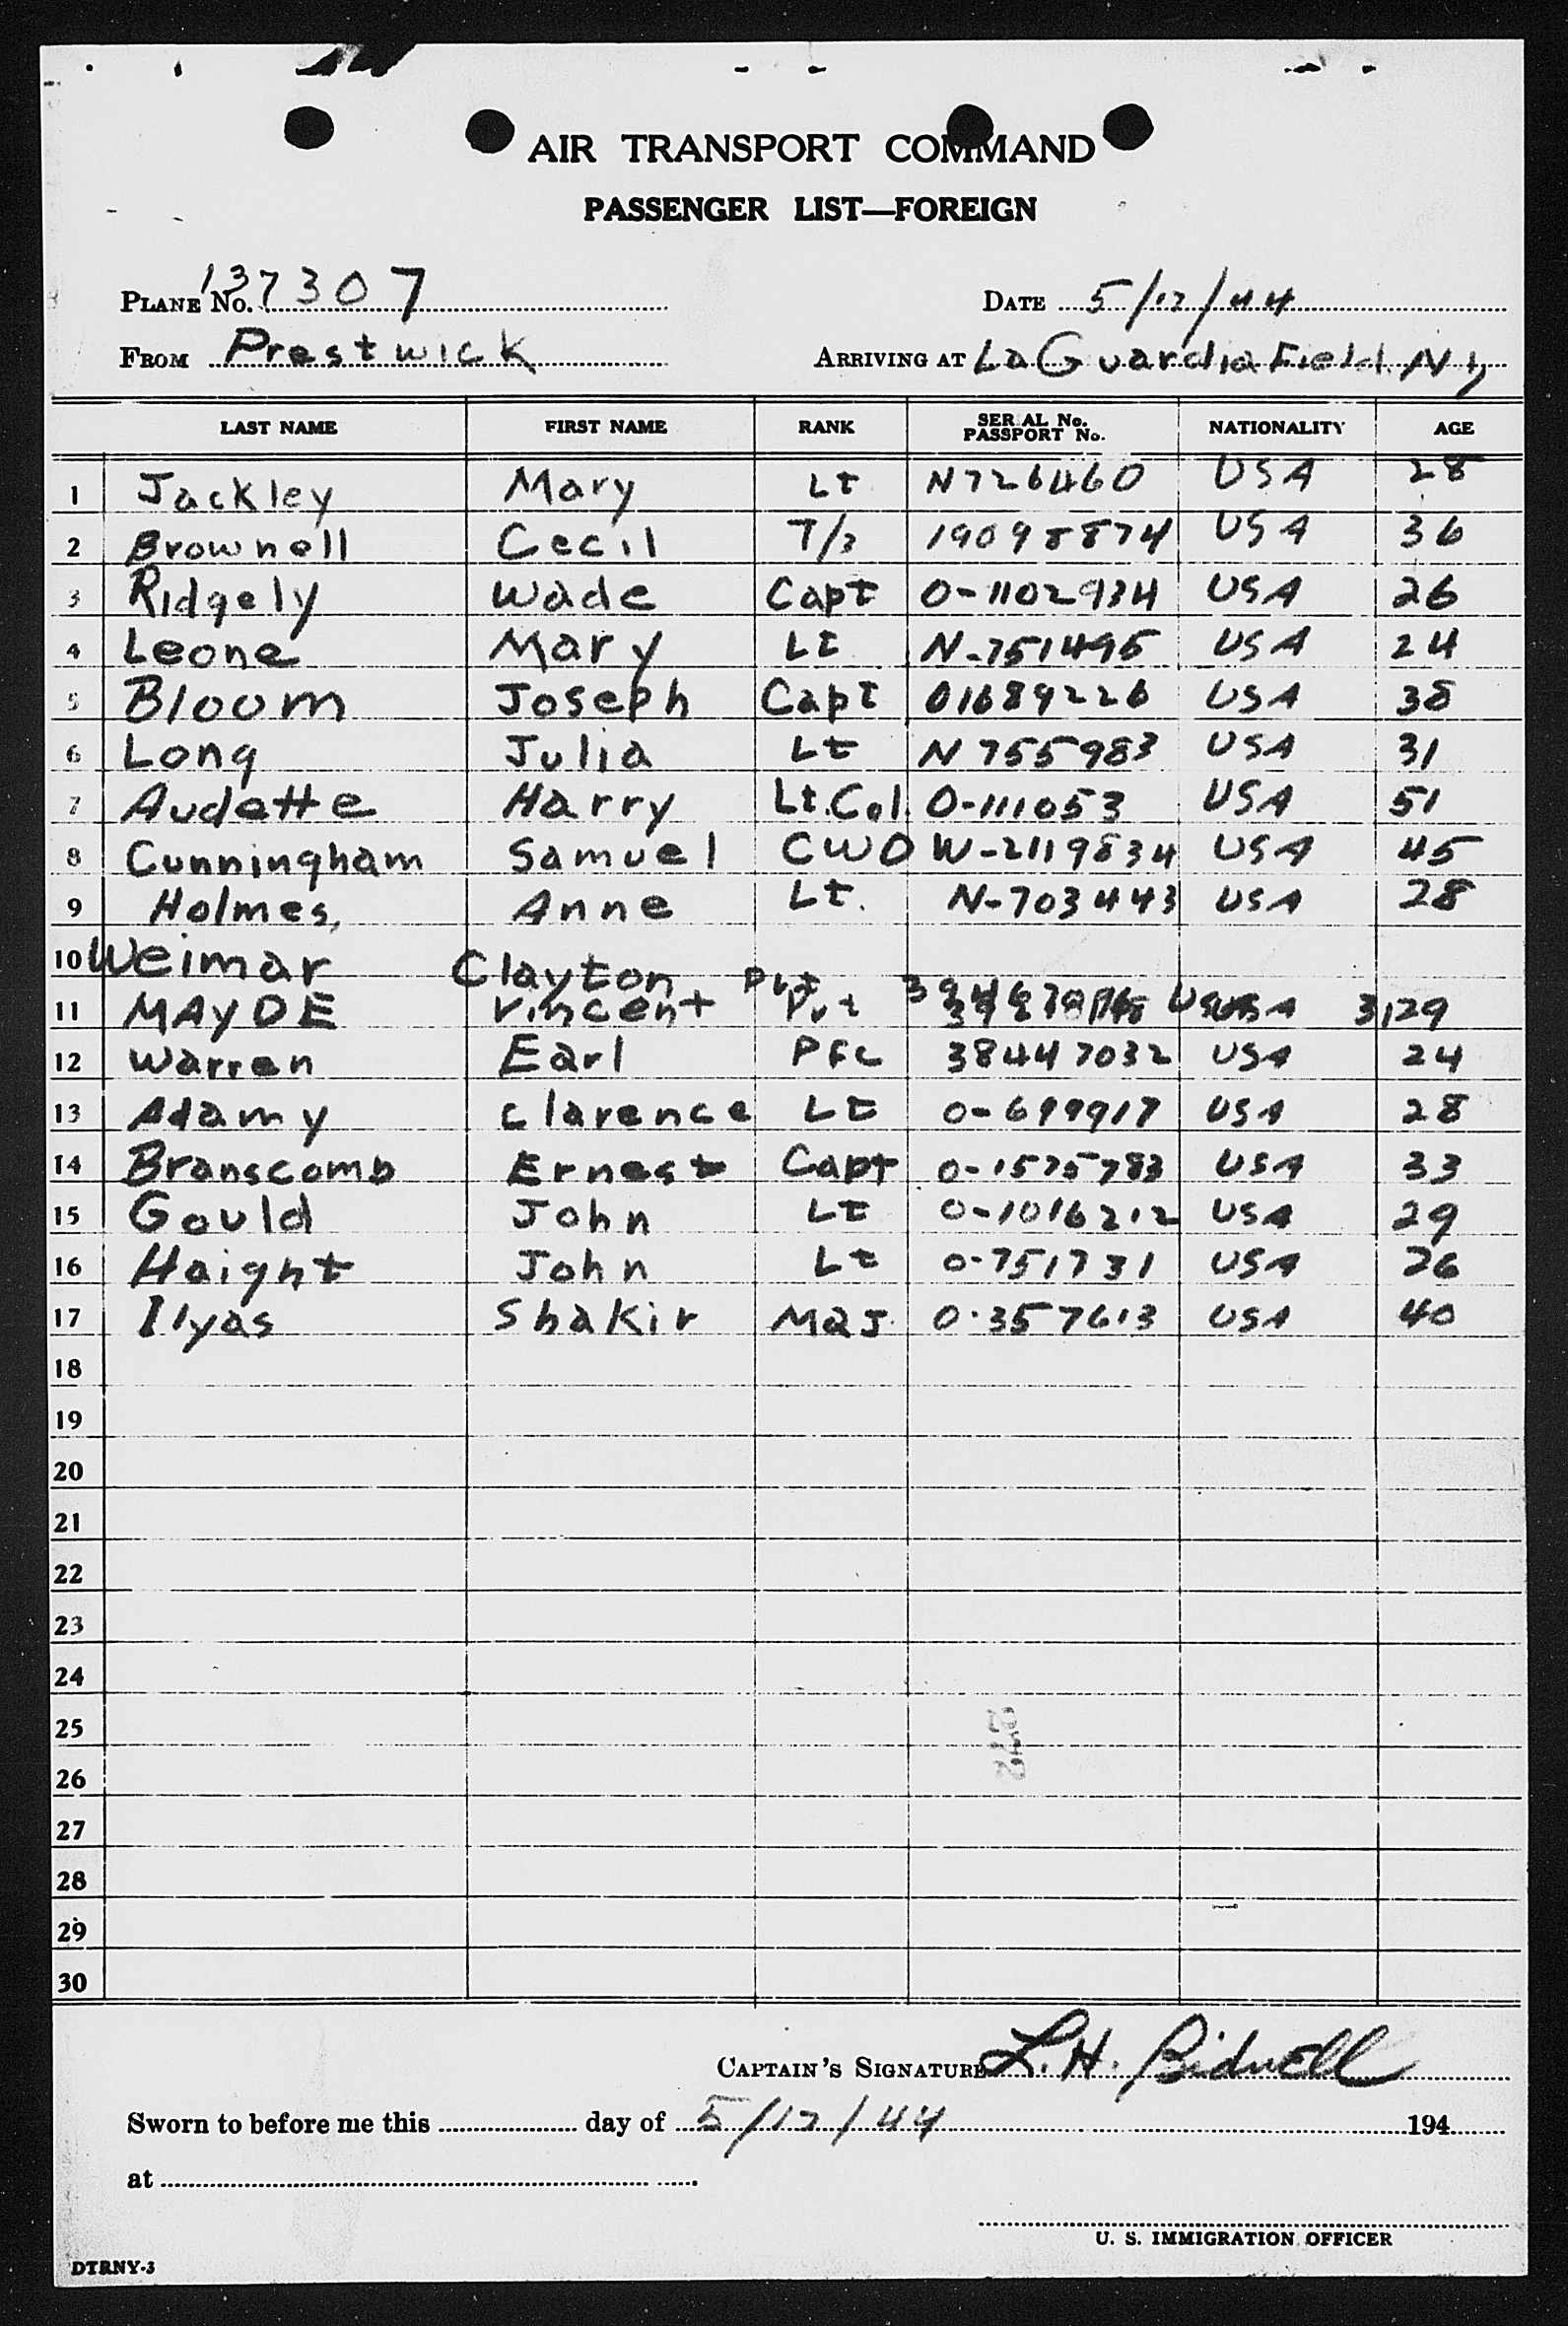 AIR TRANSPORT COMMAND
PASSENGER LIST—FOREIGN
PLANE No. 137307 DATE 5/12/44
FROM Prestwick ARRIVING AT LaGuardia Field. Ny
LAST NAME FIRST NAME RANK SERIAL No. PASSPORT No. NATIONALITY AGE
1 Jackley Mary Lt N726460 USA 28
2 Brownell Cecil T/3 19098874 USA 36
3 Ridgely Wade Capt O-1102934 USA 26
4 Leone Mary Lt N-751495 USA 24
5 Bloom Joseph Capt 01689226 USA 38
6 Long Julia Lt N 755983 USA 31
7 Audette Harry Lt.Col. O-111053 USA 51
8 Cunningham Samuel CWO W-2119834 USA 45
9 Holmes, Anne Lt. N-703443 USA 28
10 Weimar Clayton Pvt
11 MAYDE Vincent Pvt USA 29
12 Warren Earl Pfc 38447032 USA 24
13 Adamy Clarence Lt O-699917 USA 28
14 Branscomb Ernest Capt O-1575783 USA 33
15 Gould John Lt O-1016212 USA 29
16 Haight John Lt O-751731 USA 26
17 Ilyas Shakir Maj. O-357613 USA 40
18
19
20
21
22
23
24
25
26
27
28
29
30
CAPTAIN'S SIGNATURE L.H. Bidwell
Sworn to before me this day of 5/12/44 194
at
U. S. IMMIGRATION OFFICER
DTRNY-3